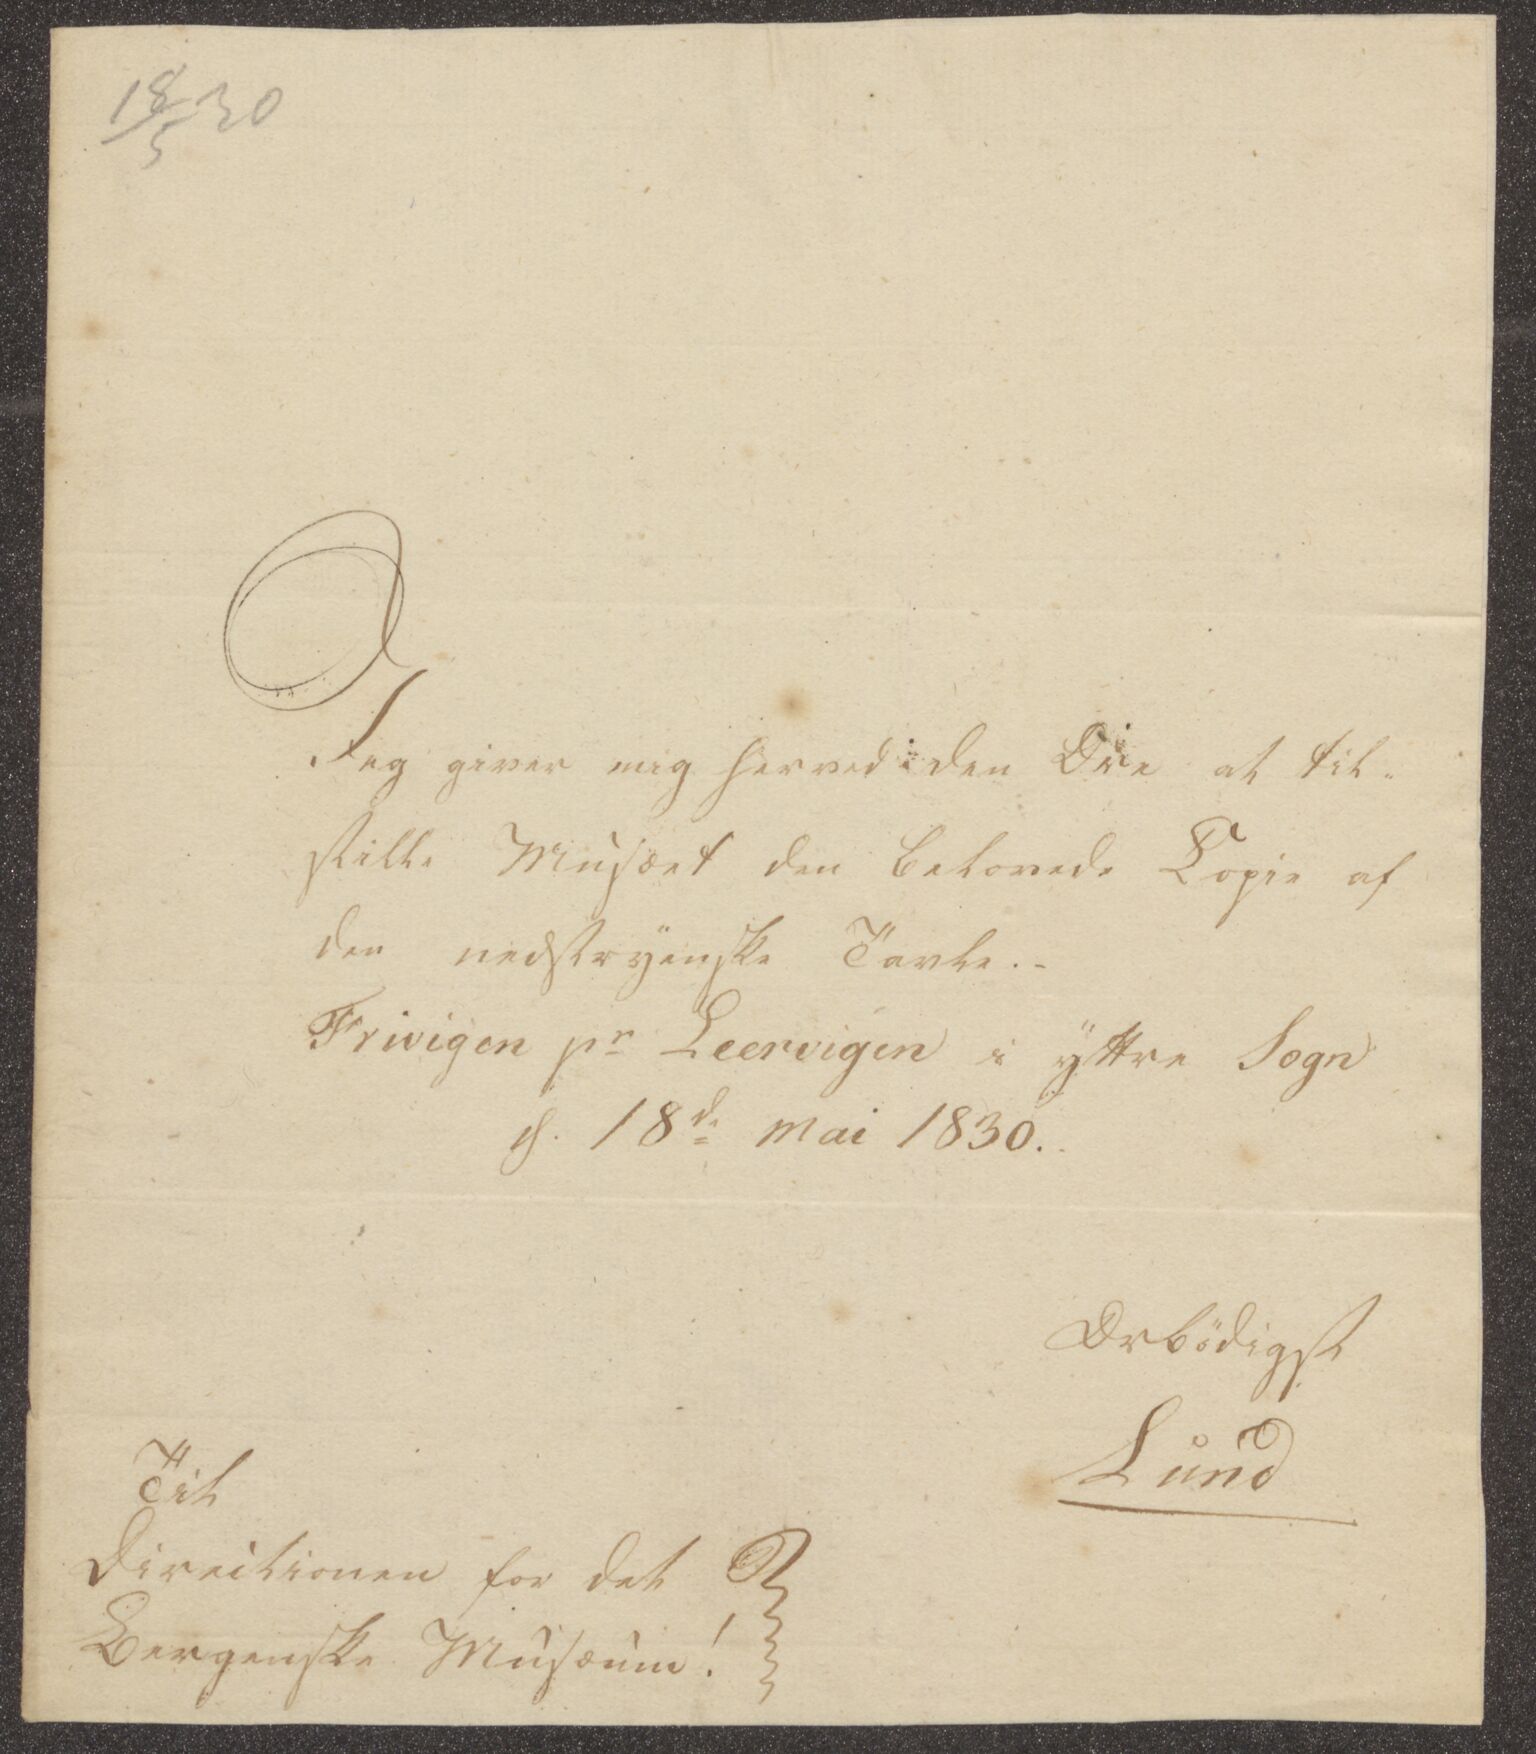 18/5 30
Jeg giver mig herved den Ære at til-
stille Musæet den belovede Copie af
den nedstryenske Tavle.-
Frivigen pr Leervigen i yttre Sogn
d. 18de Mai 1830.
Ærbödigst
Lund
Til
Directionen for det
Bergenske Musæum!